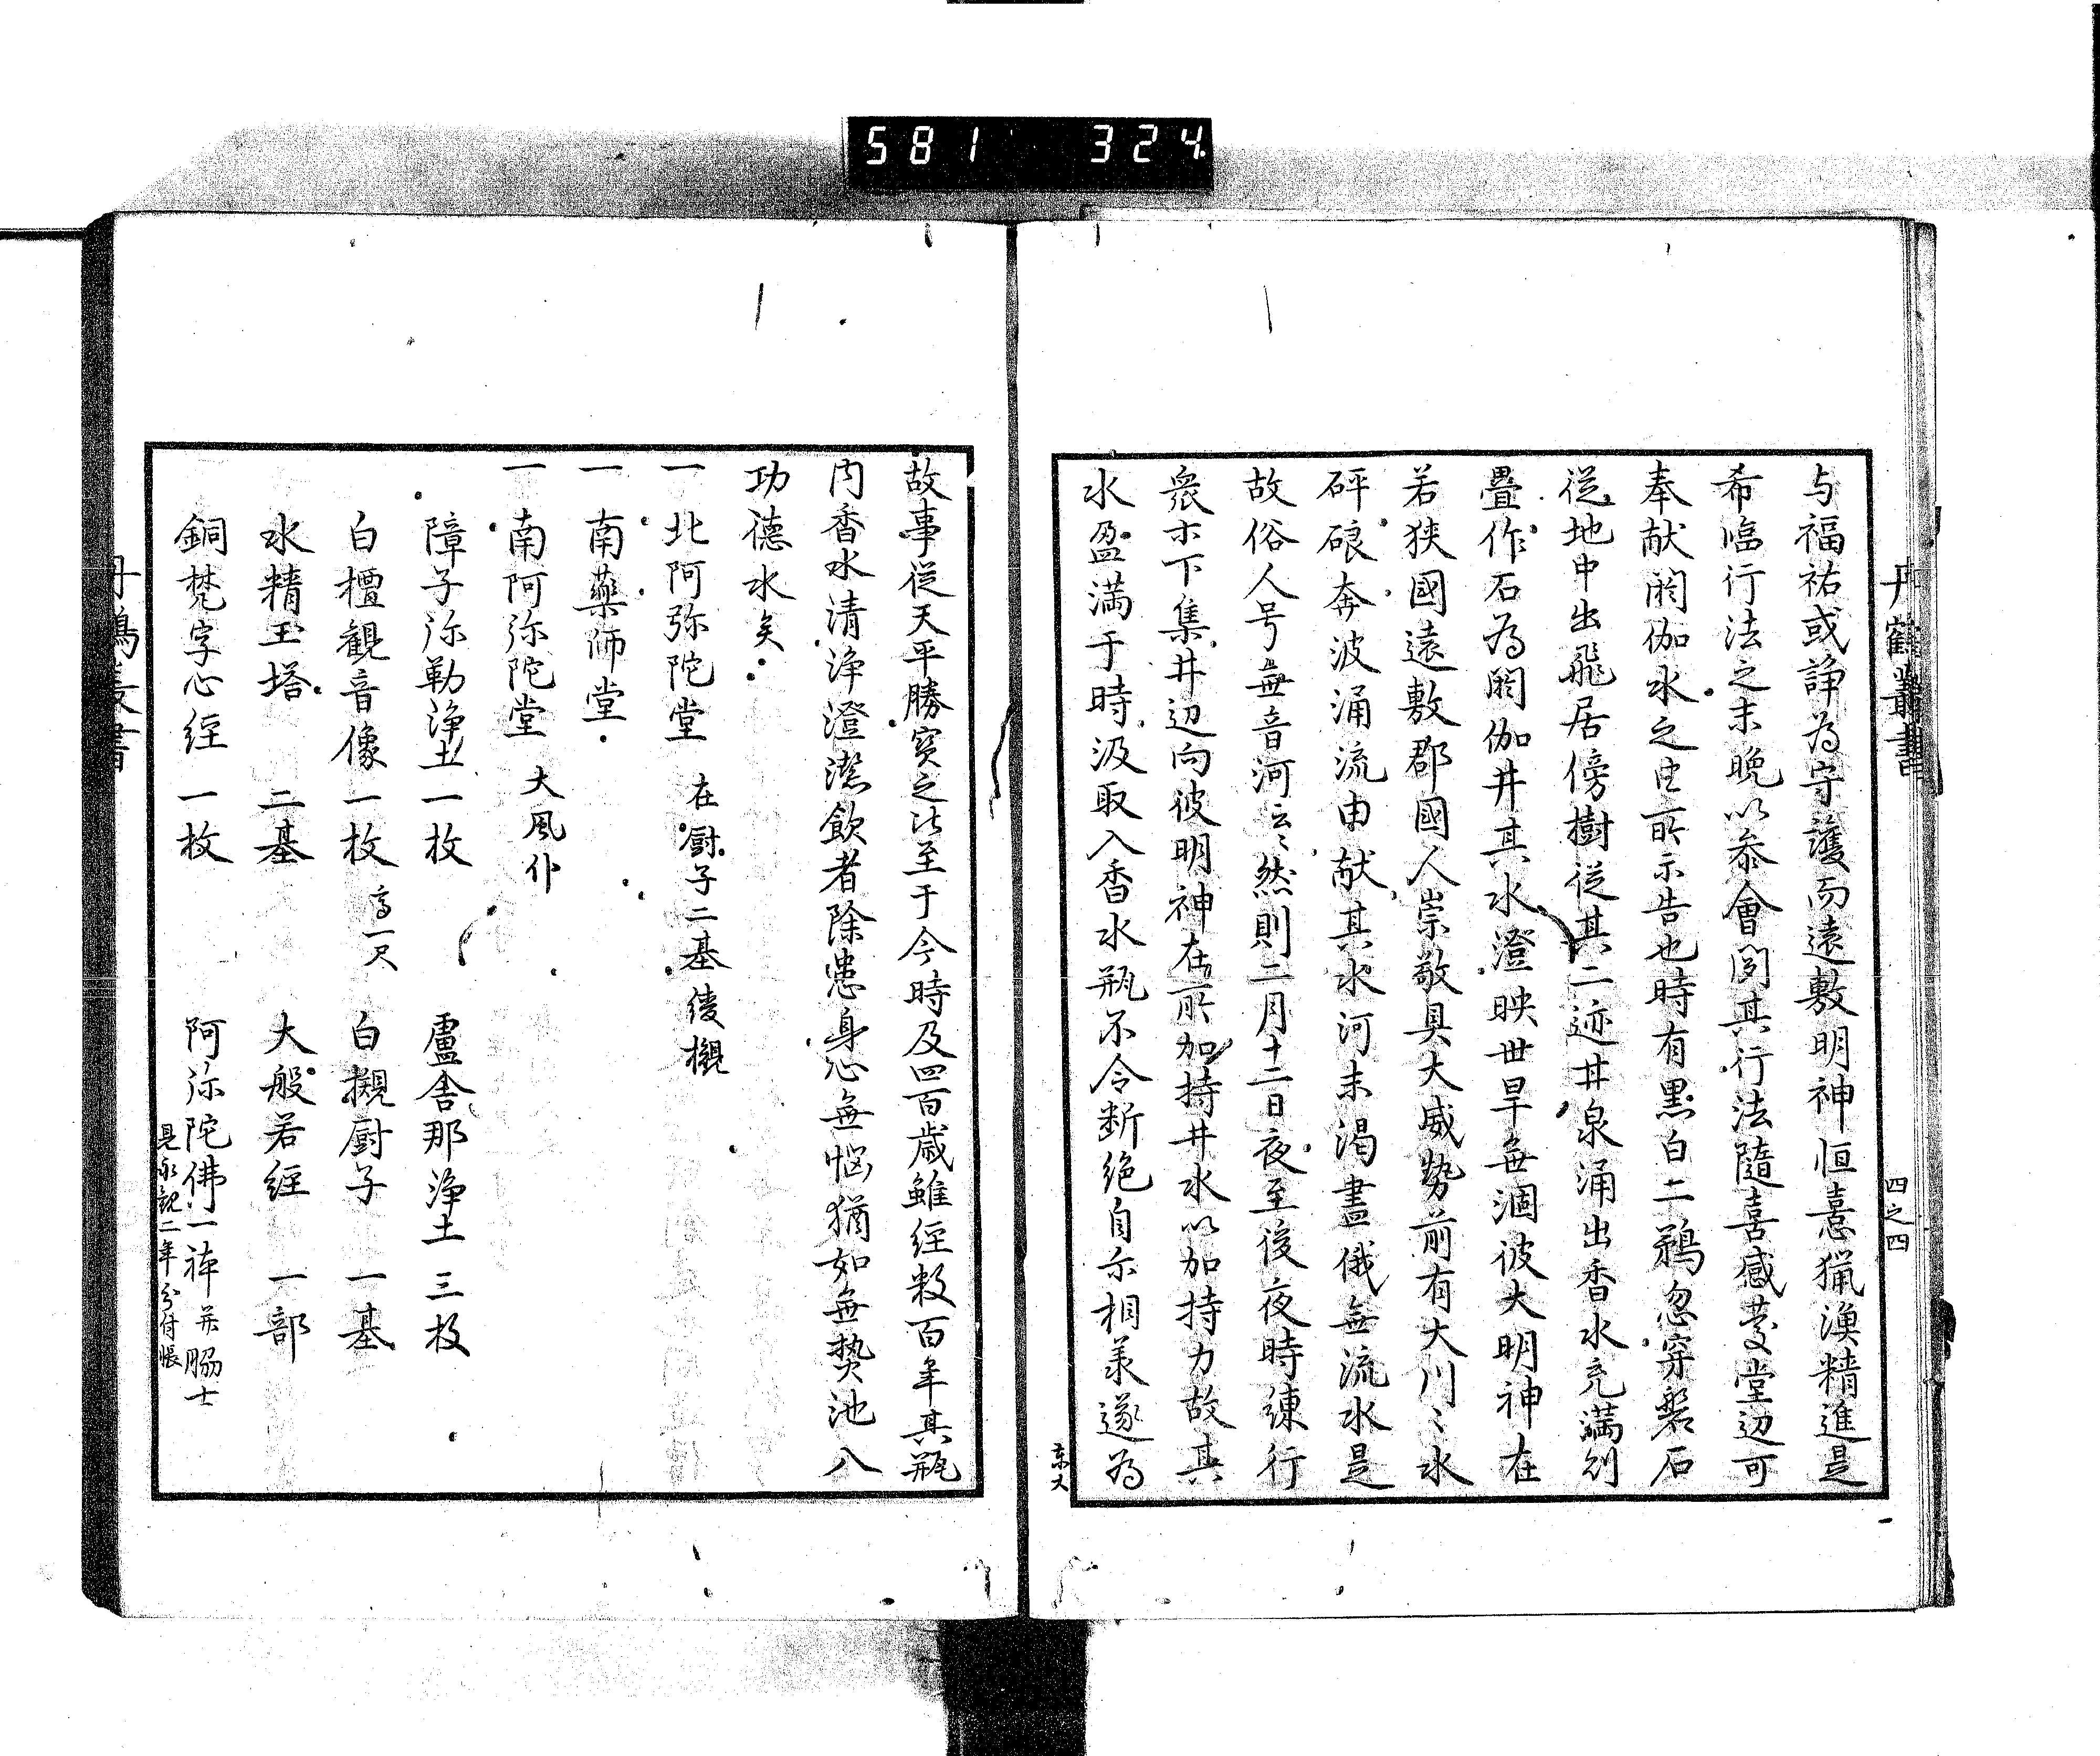 581 324
丹鶴叢書
四之四
与福祐或諍為守護而遠敷明神恒憙猟漁精進是
希臨行法之末晩以参會聞其行法隨喜感慶堂辺可
奉献閼伽水之由所示告也時有黒白二鵜忽穿磐石
従地中出飛居傍樹従其二迹井泉涌出香水充満則
疊作石為閼伽井其水澄映世旱無涸彼大明神在
若狭國遠敷郡國人崇敬具大威勢前有大川〻水
砰硠奔波涌流由献其水河末渇盡俄無流水是
故俗人号無音河云〻然則二月十二日夜至後夜時練行
衆ホ下集井辺向彼明神在所加持井水以加持力故其
水盈満于時汲取入香水瓶不令断絶自尓相羕遂為
東大
故事従天平勝寳之比至于今時及四百歳雖経数百年其瓶
内香水清浄澄潔飲者除患身心無悩猶如無𤍠池八
功德水矣
一北阿弥陀堂 在厨子二基 後櫬
一南藥師堂
一南阿弥陀堂 大風仆
障子弥勒浄土一枚 盧舎那浄土 三枚
白檀観音像一枚 高一尺 白櫬厨子 一基
水精玉塔 二基 大般若経 一部
銅梵字心経 一枚 阿弥陀佛一 并脇士
見永観二年分付帳